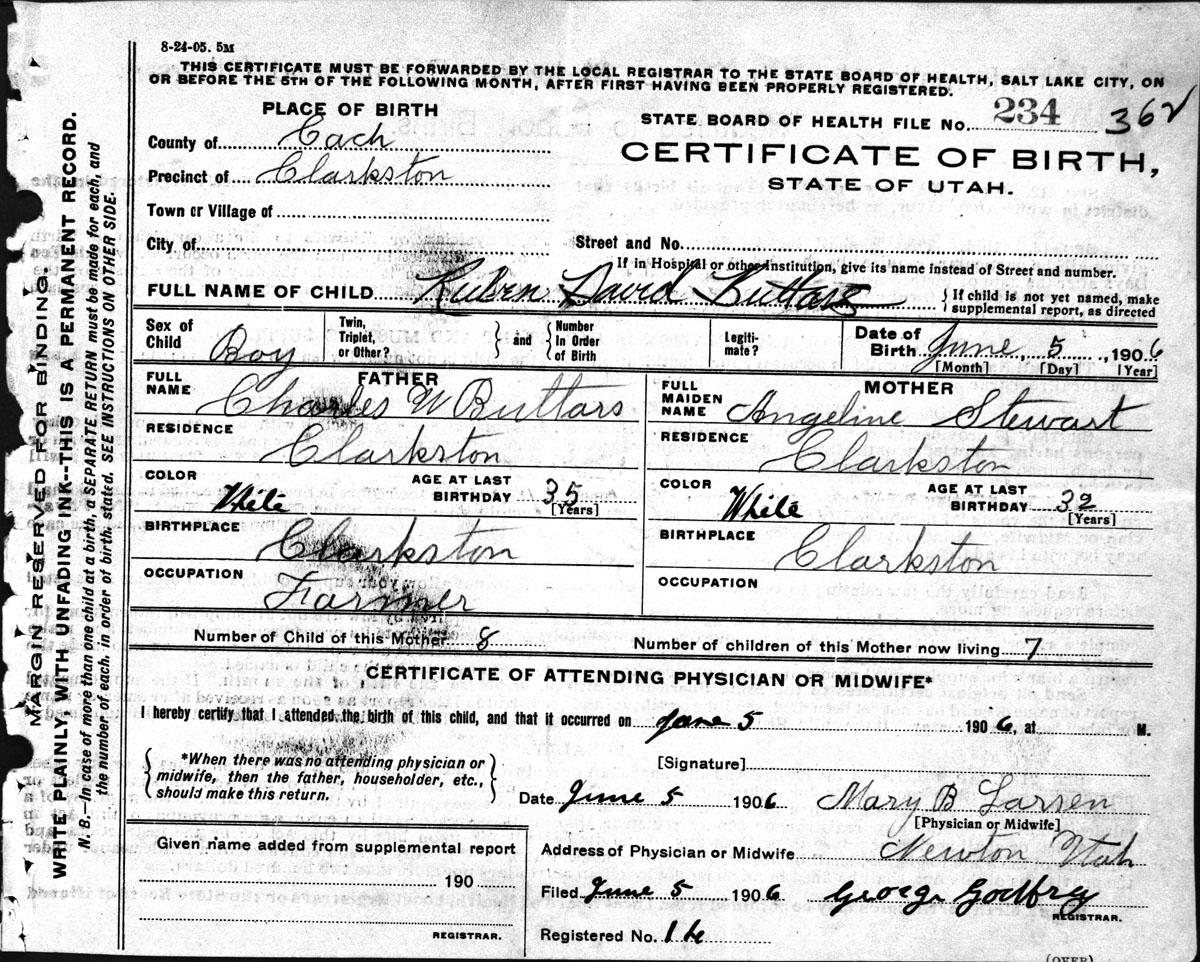 8-24-05. 5M
THIS CERTIFICATE MUST BE FORWARDED BY THE LOCAL REGISTRAR TO THE STATE BOARD OF HEALTH, SALT LAKE CITY, ON
OR BEFORE THE 5TH OF THE FOLLOWING MONTH, AFTER FIRST HAVING BEEN PROPERLY REGISTERED.
PLACE OF BIRTH
STATE BOARD OF HEALTH FILE No. 234 362
County of Cach
CERTIFICATE OF BIRTH,
Precinct of Clarkston
STATE OF UTAH.
Town or Village of
City of
Street and No.
If in Hospital or other Institution, give its name instead of Street and number.
FULL NAME OF CHILD Ruben David Buttars { If child is not yet named, make
supplemental report, as directed
Sex of Child Boy
Twin, Triplet, or Other?
} and {
Number In Order of Birth
Legiti- mate?
Date of Birth June 5, 1906
[Month] [Day] [Year]
FATHER
FULL NAME Charles W Buttars
RESIDENCE Clarkston
COLOR White
AGE AT LAST BIRTHDAY 35
[Years]
BIRTHPLACE Clarkston
OCCUPATION Farmer
MOTHER
FULL MAIDEN NAME Angeline Stewart
RESIDENCE Clarkston
COLOR White
AGE AT LAST BIRTHDAY 32
[Years]
BIRTHPLACE Clarkston
OCCUPATION
Number of Child of this Mother 8
Number of children of this Mother now living 7
CERTIFICATE OF ATTENDING PHYSICIAN OR MIDWIFE*
I hereby certify that I attended the birth of this child, and that it occurred on June 5 1906, at M.
{ *When there was no attending physician or
midwife, then the father, householder, etc.,
should make this return. }
[Signature]
Date June 5 1906 Mary B Larsen
[Physician or Midwife]
Address of Physician or Midwife Newton Utah
Filed June 5 1906 George Godfrey
REGISTRAR.
Registered No. 16
Given name added from supplemental report
190
REGISTRAR.
(OVER)
MARGIN RESERVED FOR BINDING
WRITE PLAINLY WITH UNFADING INK--THIS IS A PERMANENT RECORD.
N. B.--In case of more than one child at a birth, a SEPARATE RETURN must be made for each, and
the number of each, in order of birth, stated. SEE INSTRUCTIONS ON OTHER SIDE.